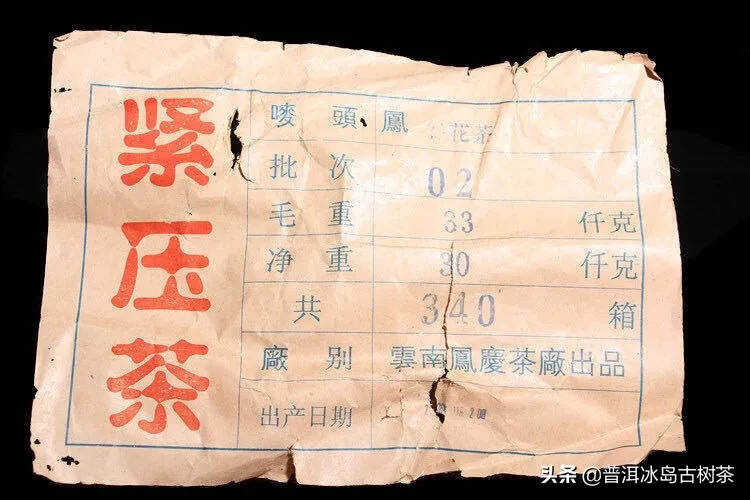 紧压茶
嘜頭 鳳 花茶
批次 02
毛重 33 仟克
净重 30 仟克
共 340 箱
廠别 雲南鳳慶茶廠出品
出产日期
头条 @普洱冰岛古树茶